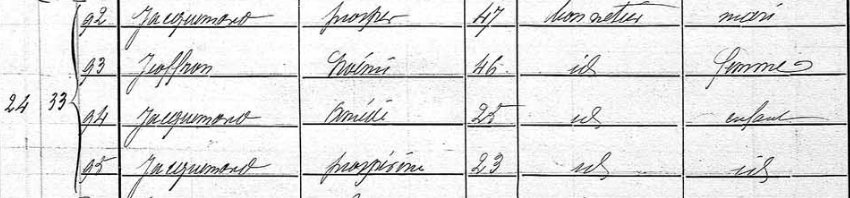 92 Jacquemard prosper 47 bonnetier mari
93 Joffron Noémie 46 id femme
24 33 94 Jacquemard Amédé 25 id enfant
95 Jacquemard prospérine 23 id id